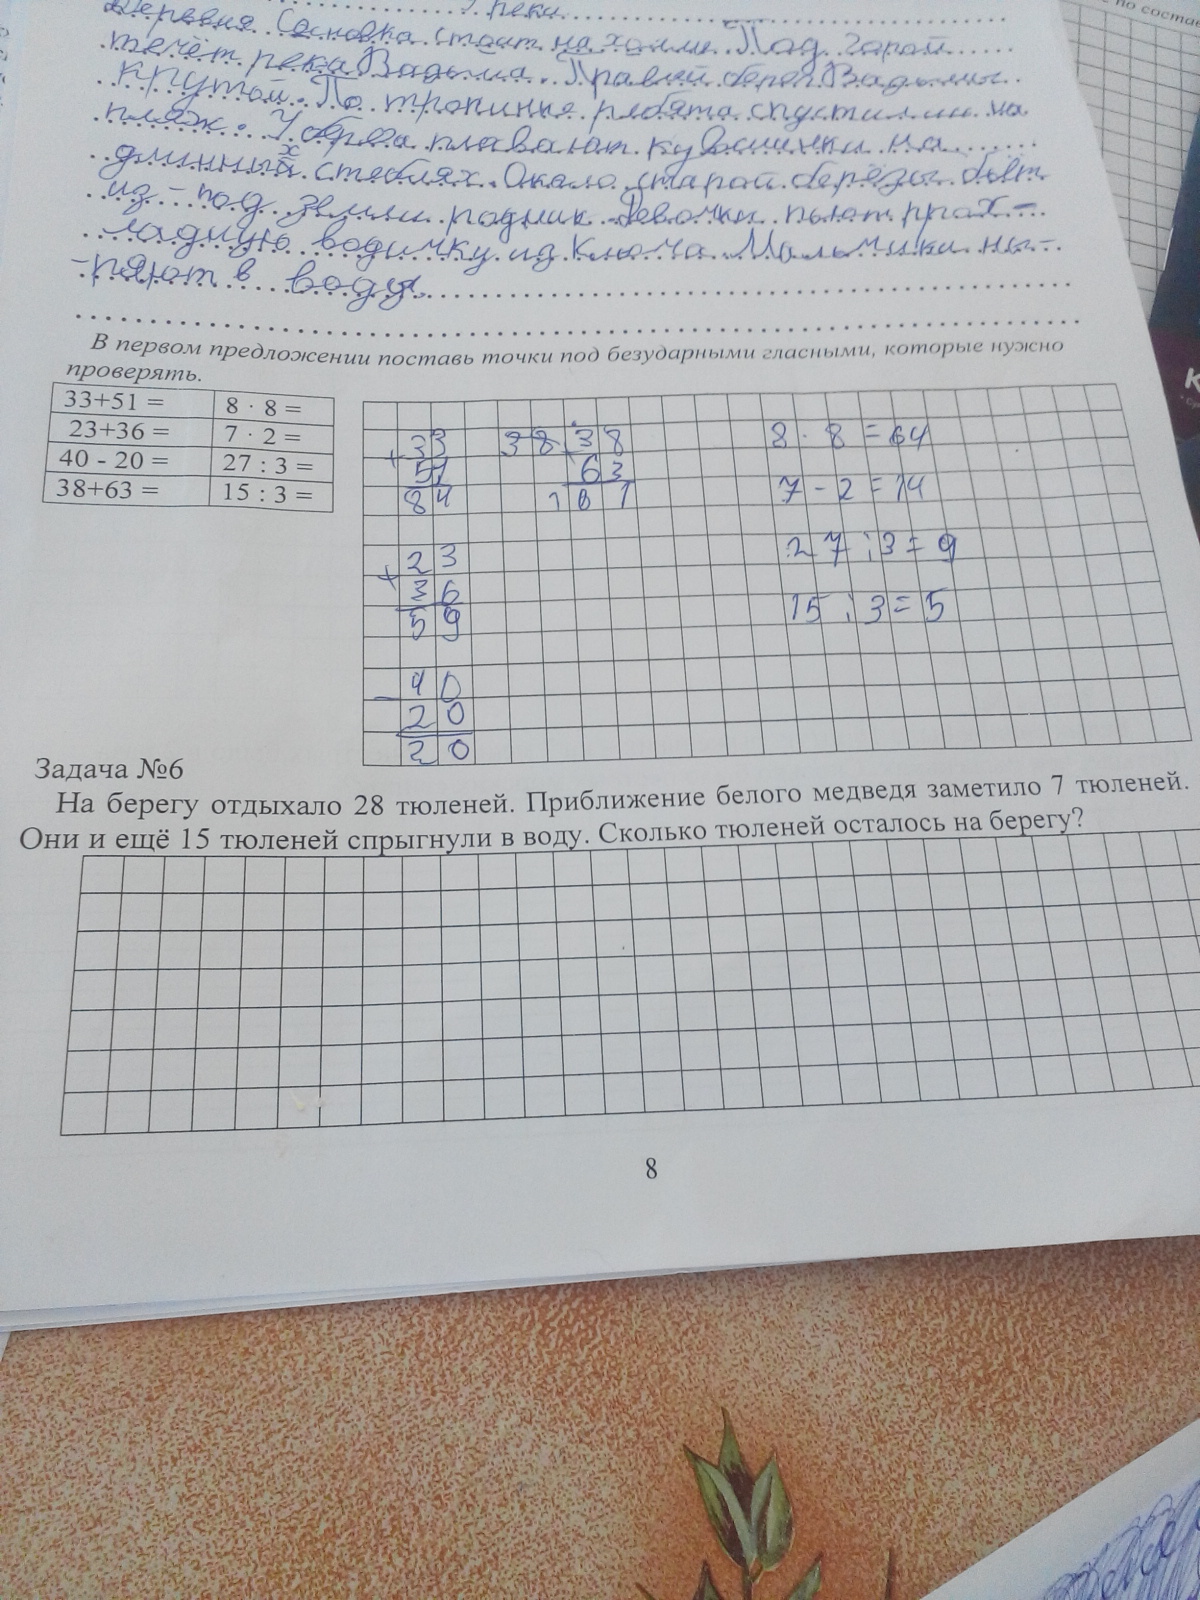 реки
Деревня Сосновка стоит на холме. Под горой
течёт река Вадьма. Правый берег Вадьмы
крутой. По тропинке ребята спустились на
пляж. У берега плавают кувшинки на
длинный х стеблях. Около старой берёзы бьёт
из-под земли родник. Девочки пьют прох-
ладную водичку из ключа. Мальчики ны-
-ряют в воду.
В первом предложении поставь точки под безударными гласными, которые нужно
проверять.
33+51 = 8 · 8 =
23+36 = 7 · 2 =
40 - 20 = 27 : 3 =
38+63 = 15 : 3 =
+ 33
51
84
38 + 38
63
101
+ 23
36
59
- 40
20
20
8 · 8 = 64
7 - 2 = 14
27 : 3 = 9
15 : 3 = 5
Задача №6
На берегу отдыхало 28 тюленей. Приближение белого медведя заметило 7 тюленей.
Они и ещё 15 тюленей спрыгнули в воду. Сколько тюленей осталось на берегу?
8
по состав
К